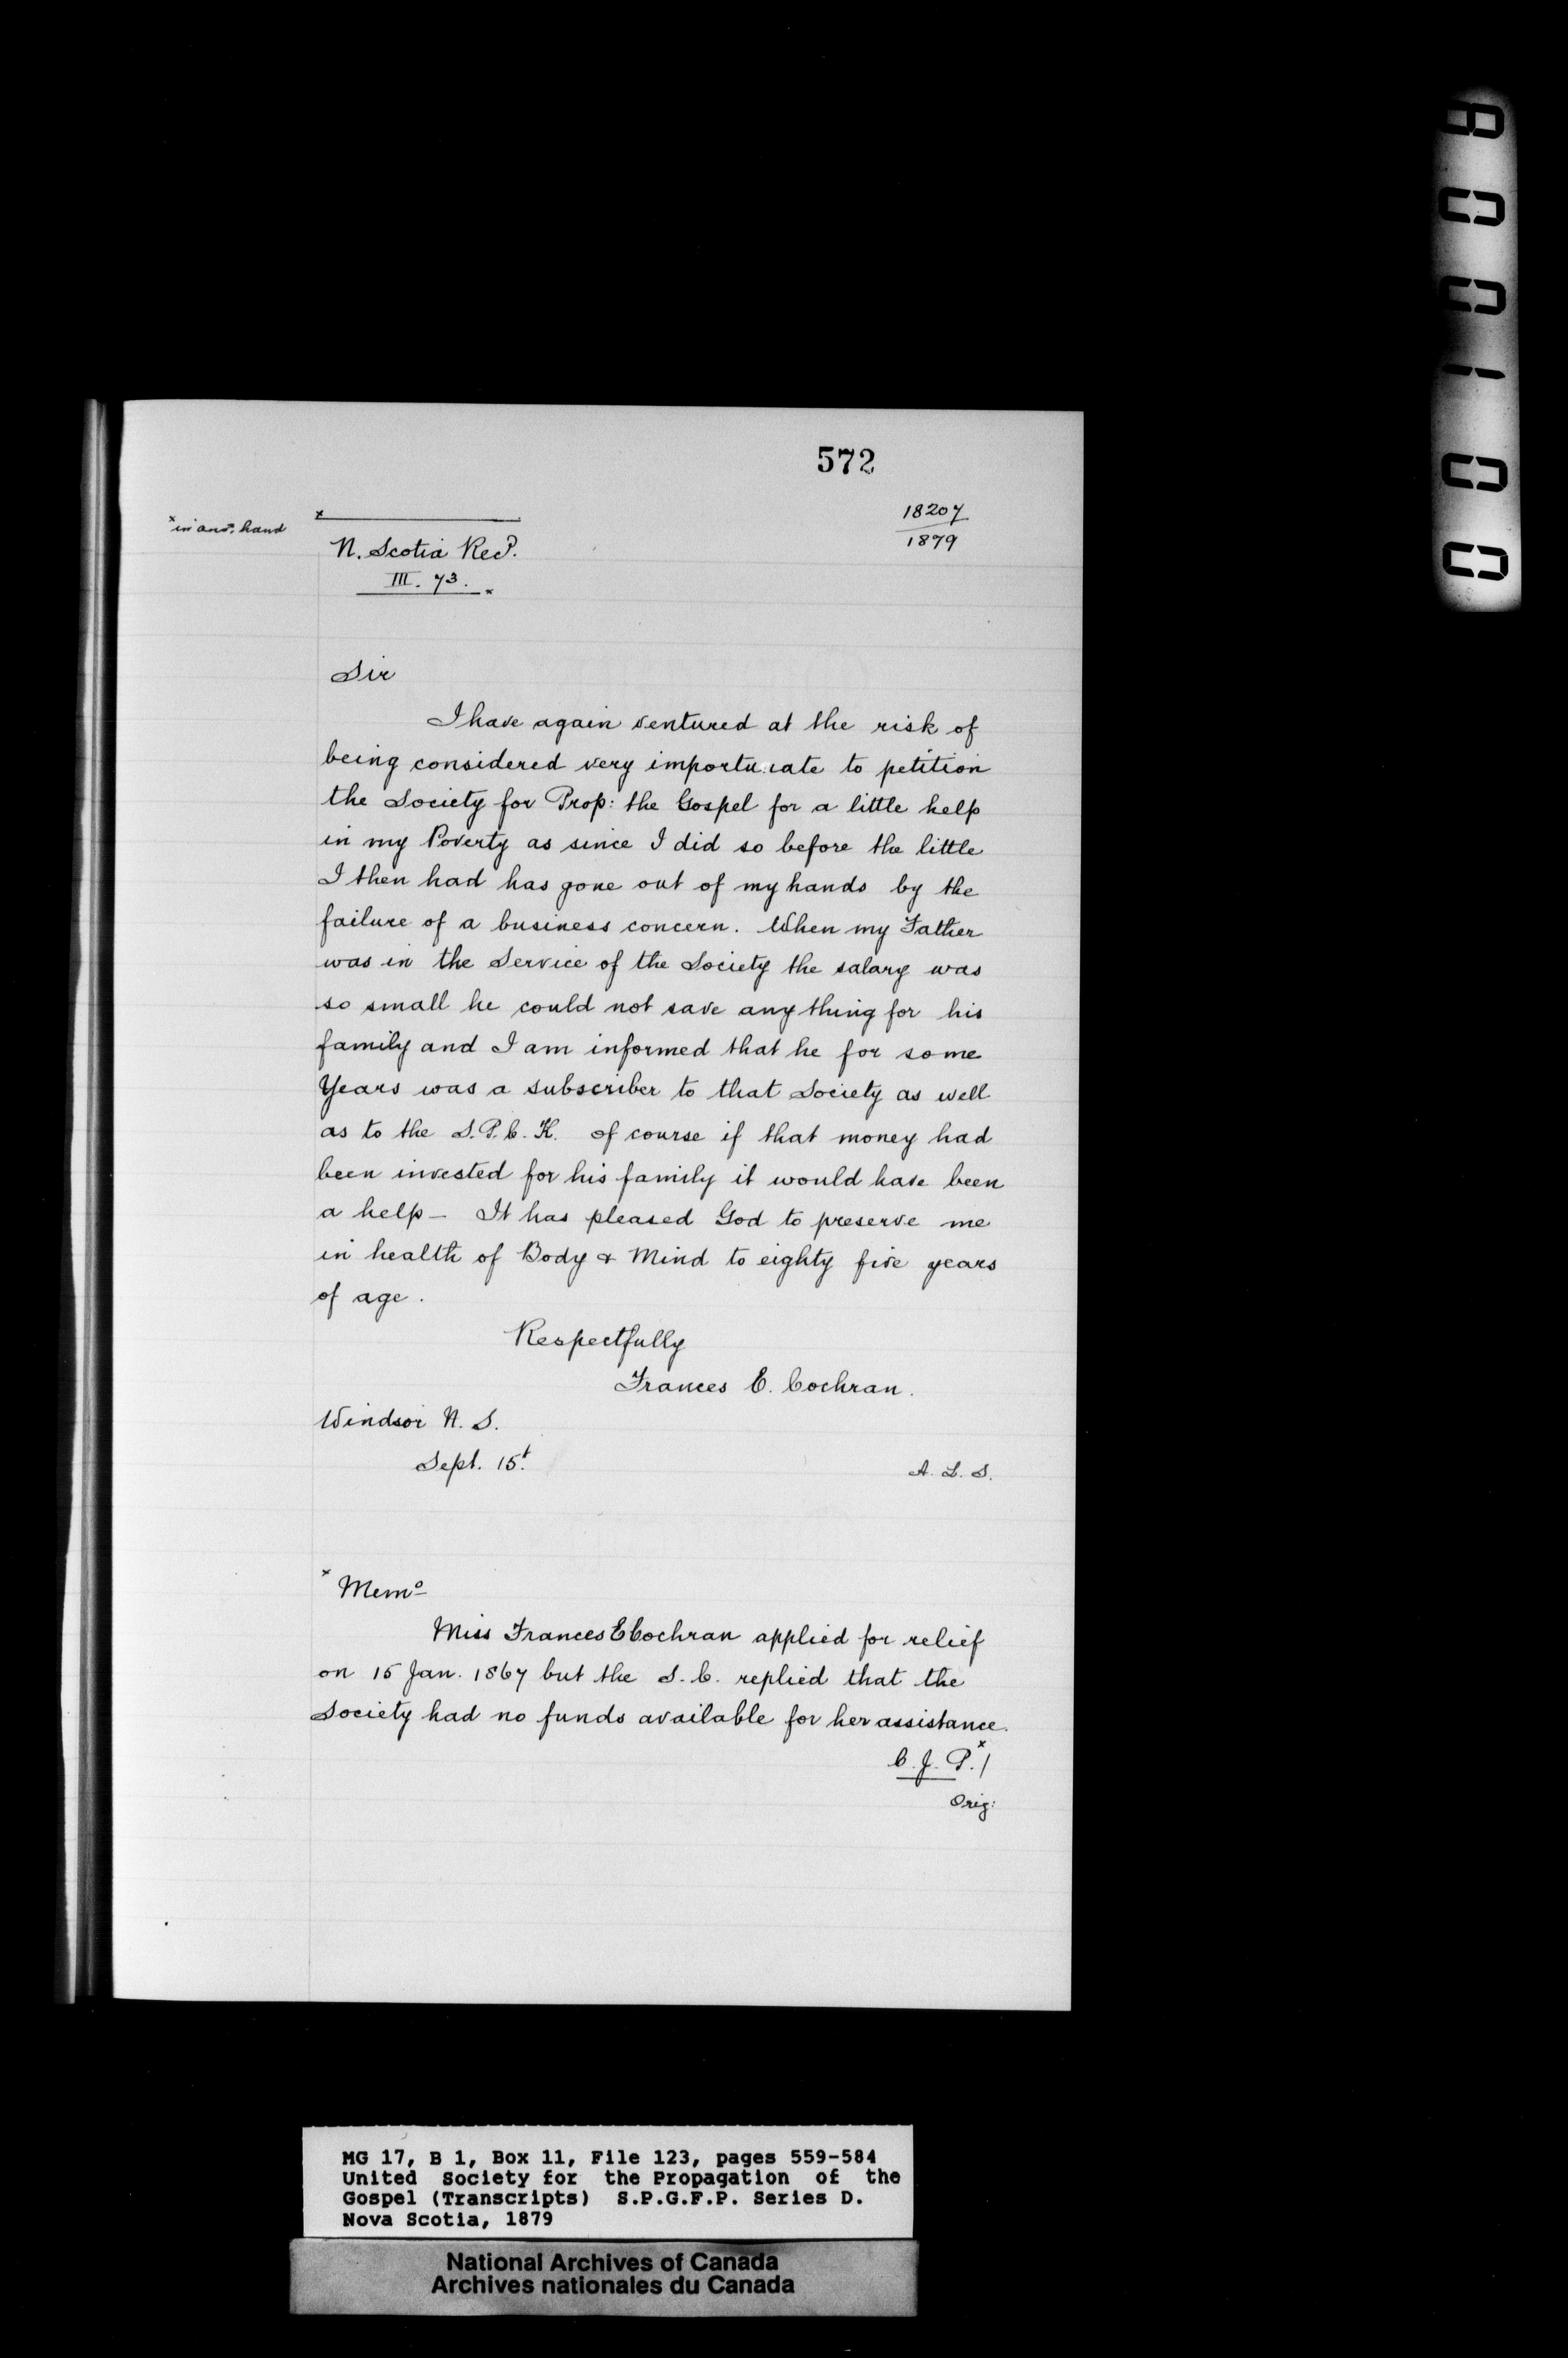 572
18207
1879
x in anr. hand
x
N. Scotia Rec^d.
III. 73. x
Sir
I have again ventured at the risk of
being considered very importunate to petition
the Society for Prop: the Gospel for a little help
in my Poverty as since I did so before the little
I then had has gone out of my hands by the
failure of a business concern. When my Father
was in the Service of the Society the salary was
so small he could not save any thing for his
family and I am informed that he for some
Years was a subscriber to that Society as well
as to the S.P.C.K. of course if that money had
been invested for his family it would have been
a help – It has pleased God to preserve me
in health of Body & Mind to eighty five years
of age.
Respectfully
Frances E. Cochran.
Windsor N. S.
Sept. 15t.
A. L. S.
x Memo
Miss Frances E Cochran applied for relief
on 15 Jan. 1867 but the S. C. replied that the
Society had no funds available for her assistance.
C. J. P. x /
Orig:
MG 17, B 1, Box 11, File 123, pages 559-584
United Society for the Propagation of the
Gospel (Transcripts) S.P.G.F.P. Series D.
Nova Scotia, 1879
National Archives of Canada
Archives nationales du Canada